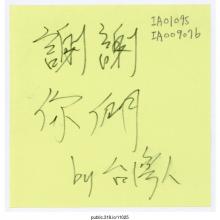 IA01095
IA009076
謝謝
你們
by 台灣人
public.318.io/11025